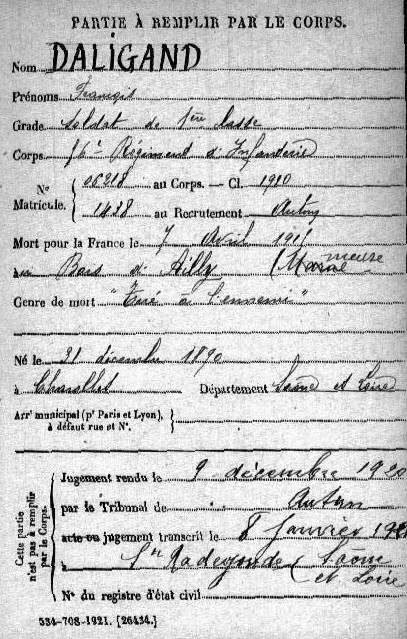 PARTIE À REMPLIR PAR LE CORPS.
Nom DALIGAND
Prénoms François
Grade Soldat de 1ère classe
Corps 56e Régiment d'Infanterie
N° Matricule. 06218 au Corps. — Cl. 1910
1438 au Recrutement Autun
Mort pour la France le 7 Avril 1915
au Bois d'Ailly (Marne meuse
Genre de mort "Tué à l'ennemi"
Né le 21 décembre 1890
à Charolles Département Saône et Loire
Arrt municipal (pr Paris et Lyon),
à défaut rue et N°.
Cette partie n'est pas à remplir par le Corps.
Jugement rendu le 9 décembre 1920
par le Tribunal de Autun
acte ou jugement transcrit le 8 Janvier
à Ste Radegonde (Saône
et Loire
N° du registre d'état civil
534-708-1921. [26434.]